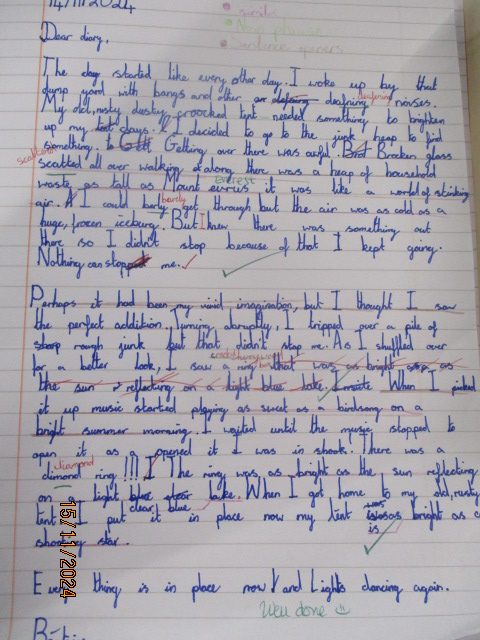 14/11/2024
simile
Noun phrase
Sentence openers
Dear diary,
The day started like every other day. I woke up by that
dump yard with bangs and other defning deafning noisses.
deafening
My old, rusty, dusty, croocked tent needed something to brighten
up my days. I decided to go to the junk heap to find
something. Getting over there was awful. Broken glass
scattered
scatted all over walking along there was a heap of household
Everest
waste as tall as Mount evrus it was like a world of stinking
barely
air. I could barly get through but the air was as cold as a
huge, frozen iceburg. But I knew there was something out
there so I didn't stop because of that I kept going.
Nothing can stop me.
Perhaps it had been my vivid imagination, but I thought I saw
the perfect addition. Turning abruptly, I tripped over a pile of
sharp rough junk but that didn't stop me. As I shuffled over
for a better look, I saw a ring that was as bright as
the sun reflecting on a light blue lake. When I picked
it up music started playing as sweet as a birdsong on a
bright summer morning. I waited until the music stopped to
open it as a opened it I was in shock. There was a
diamond
dimond ring!!! The ring was as bright as the sun reflecting
on a light blue clear lake. When I got home to my old, rusty
clear blue
tent I put it in place now my tent is as bright as a
was
is
shooting star.
Every thing is in place now and Lights dancing again.
Well done
15/11/2024